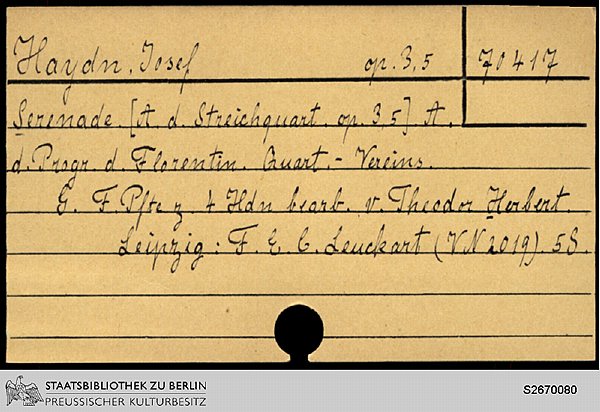 Haydn, Josef op. 3,5 70417
Serenade. [A. d. Streichquart. op. 3,5] A.
d. Progr. d. Florentin. Quart.- Vereins.
G. F. Pfte z. 4 Hdn bearb. v. Theodor Herbert.
Leipzig: F. E. C. Leuckart (V.N 2019). 5S.
STAATSBIBLIOTHEK ZU BERLIN
PREUSSISCHER KULTURBESITZ
S2670080